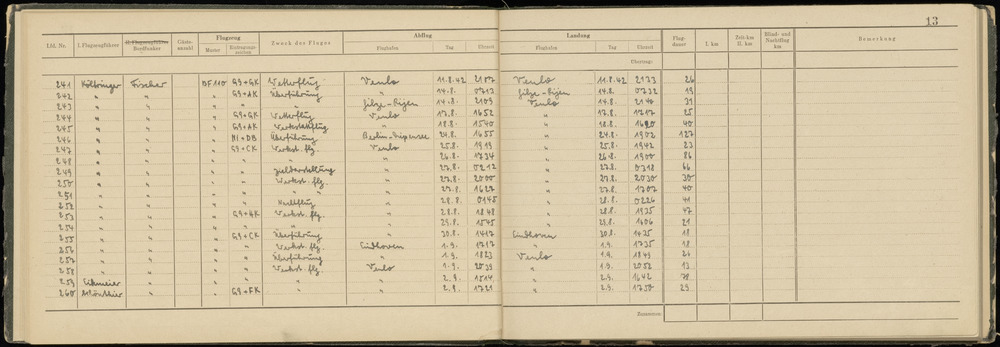 13
Lfd. Nr. I. Flugzeugführer II. Flugzeugführer Bordfunker Gästeanzahl Flugzeug Muster Eintragungszeichnung Zweck des Fluges Abflug Flughafen Tag Uhrzeit Landung Flughafen Tag Uhrzeit Flugdauer I. km Zeit-km II. km Blind- und Nachtflug km Bemerkung
Übertrag:
241 Fischer DF 110 G9+GK Venlo 11.8.42 2107 Venlo 11.8.42 2133 26
242 " " G9+AK Überführung " 14.8. 0713 Gilze-Rijen 14.8. 0732 19
243 " " " Gilze-Rijen 14.8. 2109 Venlo 14.8. 2140 31
244 " " G9+GK Venlo 17.8. 1652 " 17.8. 1717 25
245 " " G9+AK Werkstattflug " 18.8. 1540 " 18.8. 40
246 " " Überführung 24.8. 1655 " 24.8. 1902 127
247 " " G9+CK Werkst. flg. Venlo 25.8. 1919 " 25.8. 1942 23
248 " " " " 26.8. 1734 " 26.8. 1900 86
249 " " " 27.8. 0212 " 27.8. 0318 66
250 " " Werkst. flg. " 27.8. 2000 " 27.8. 2030 30
251 " " " " 27.8. 1627 " 27.8. 1707 40
252 " " " 28.8. 0145 " 28.8. 0226 41
253 " " G9+GK Werkst. flg. " 28.8. 1848 " 28.8. 1935 47
254 " " " " 29.8. 1545 " 29.8. 1606 21
255 " " G9+CK Überführung " 30.8. 1417 Eindhoven 30.8. 1435 18
256 " " Werkst. flg. Eindhoven 1.9. 1717 " 1.9. 1735 18
257 " " Überführung " 1.9. 1823 Venlo 1.9. 1849 26
258 " " Werkst. flg. Venlo 1.9. 2039 " 1.9. 2052 13
259 " " " 2.9. 1514 " 2.9. 1642
260 " G9+FK " " 2.9. 1721 " 2.9. 1750 29
Zusammen: